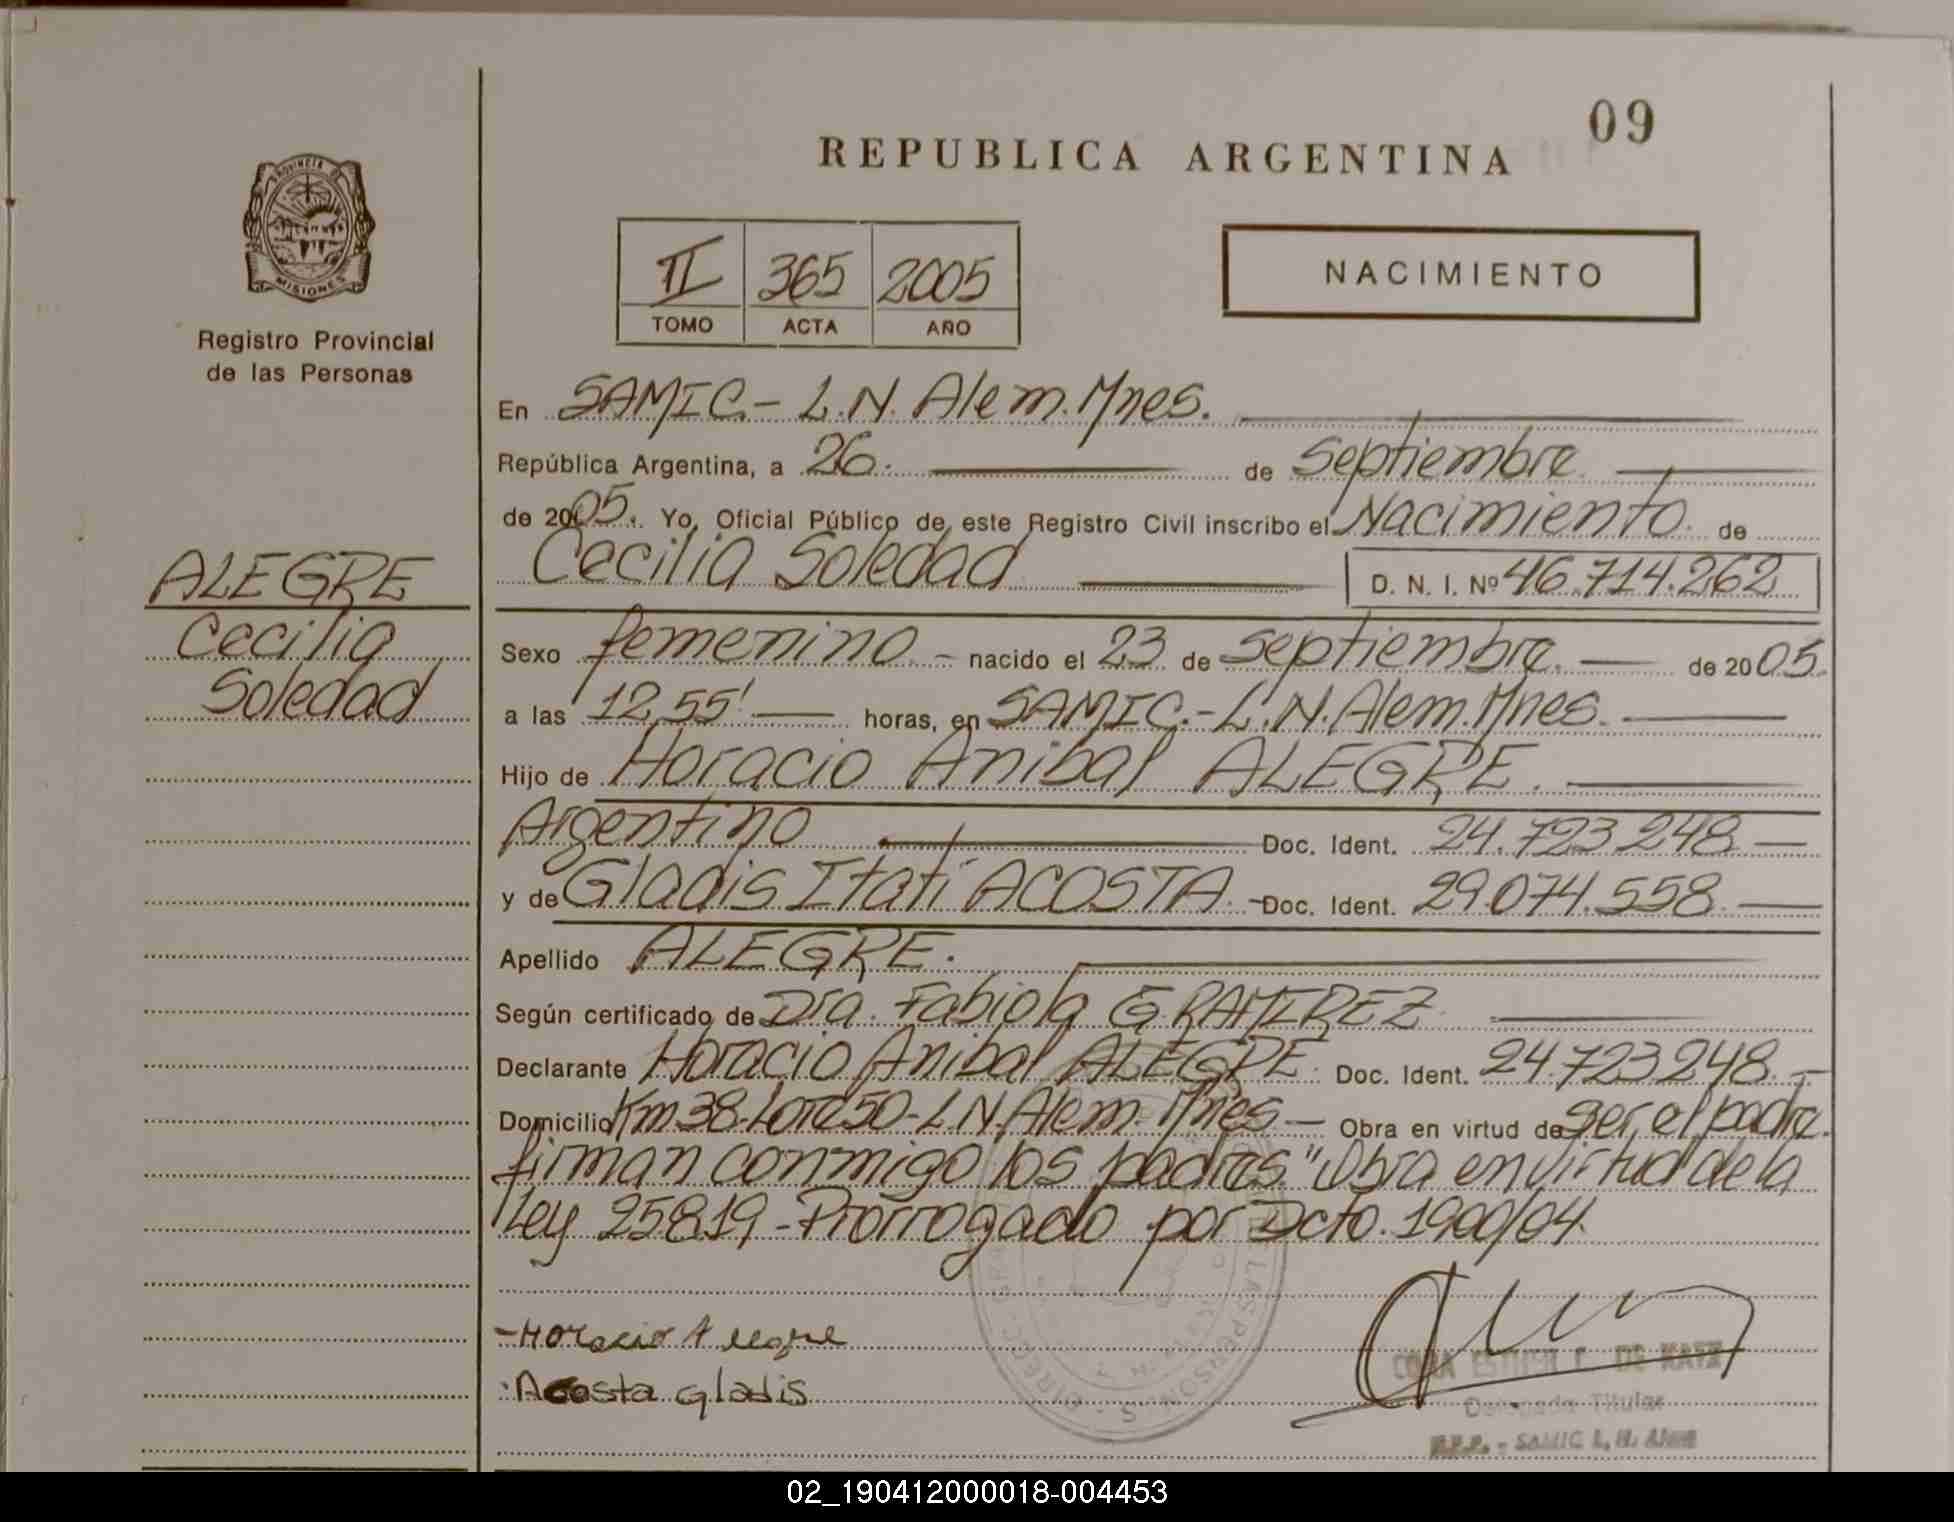 09
REPUBLICA ARGENTINA
PROVINCIA DE
MISIONES
Registro Provincial
de las Personas
II 365 2005
TOMO ACTA AÑO
NACIMIENTO
En SAMIC.- L.N. Alem. Mnes.
República Argentina, a 26. de Septiembre.
de 2005. Yo, Oficial Público de este Registro Civil inscribo el Nacimiento. de
Cecilia Soledad D. N. I. Nº 46.714.262
ALEGRE
Cecilia
Soledad
Sexo femenino. - nacido el 23 de Septiembre. de 2005.
a las 12,55' horas, en SAMIC.- L.N. Alem. Mnes.
Hijo de Horacio Anibal ALEGRE.
Argentino Doc. Ident. 24.723.248.
y de Gladis Itatí ACOSTA. - Doc. Ident. 29.074.558.
Apellido ALEGRE.
Según certificado de Dra. Fabiola G RAMIREZ
Declarante Horacio Anibal ALEGRE. Doc. Ident. 24.723.248.
Domicilio Km 38-Lote 50- L N. Alem- Mnes - Obra en virtud de ser el padre.
firman conmigo los padres. "Obra en virtud de la
Ley 25819 - Prorrogado por Dcto. 1900/04.
- Horacio Alegre
Acosta gladis
DE KATZ
Delegada Titular
SAMIC L. N. Alem
02_190412000018-004453